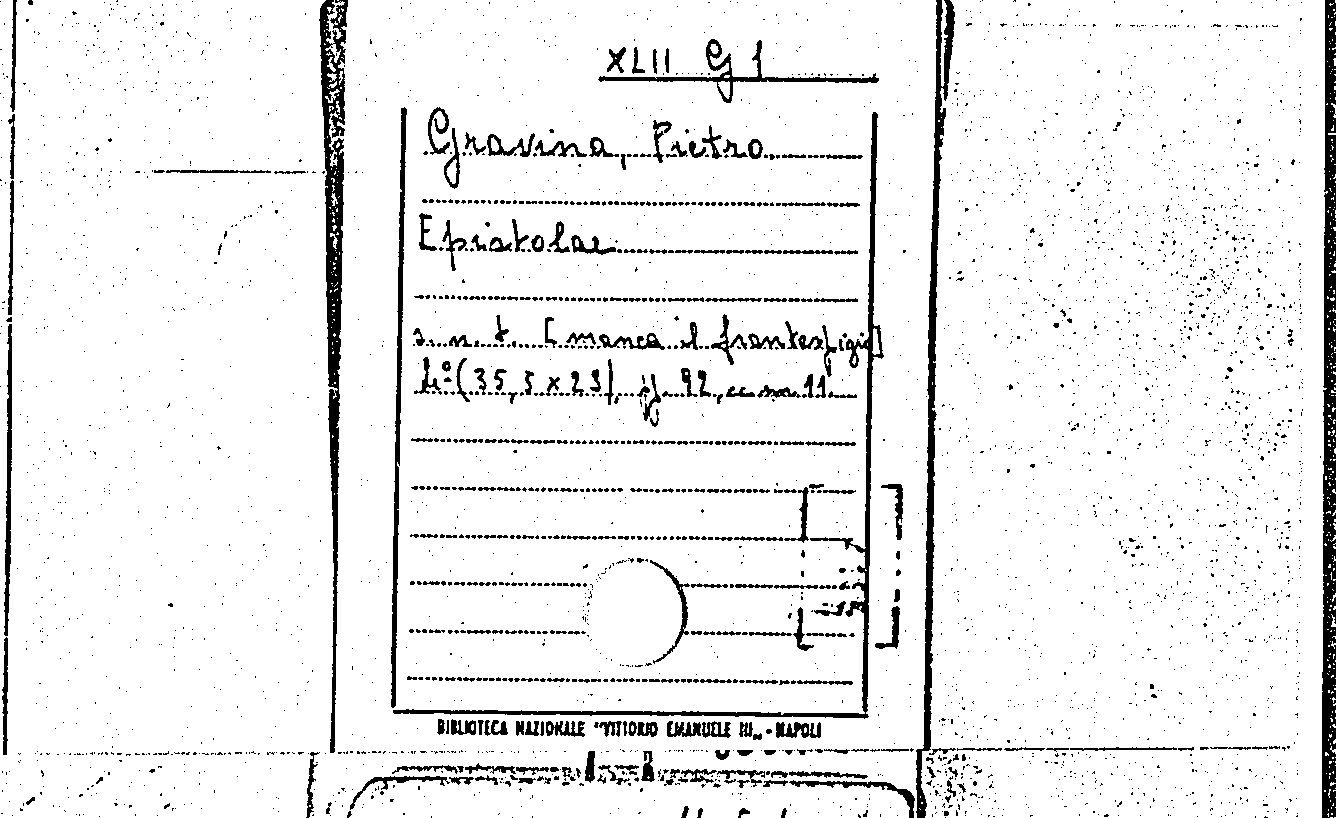 XLII G 1
Gravina, Pietro
Epistolae
s. n. t. [manca il frontespizio]
4º (35,5 x 23), ff. 92, cc. nn. 11
BIBLIOTECA NAZIONALE "VITTORIO EMANUELE III„ - NAPOLI